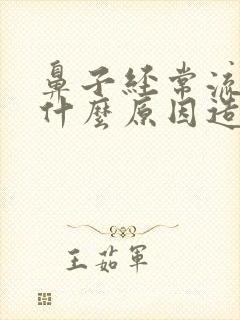 鼻子経常流
什麼原因造
王茹軍